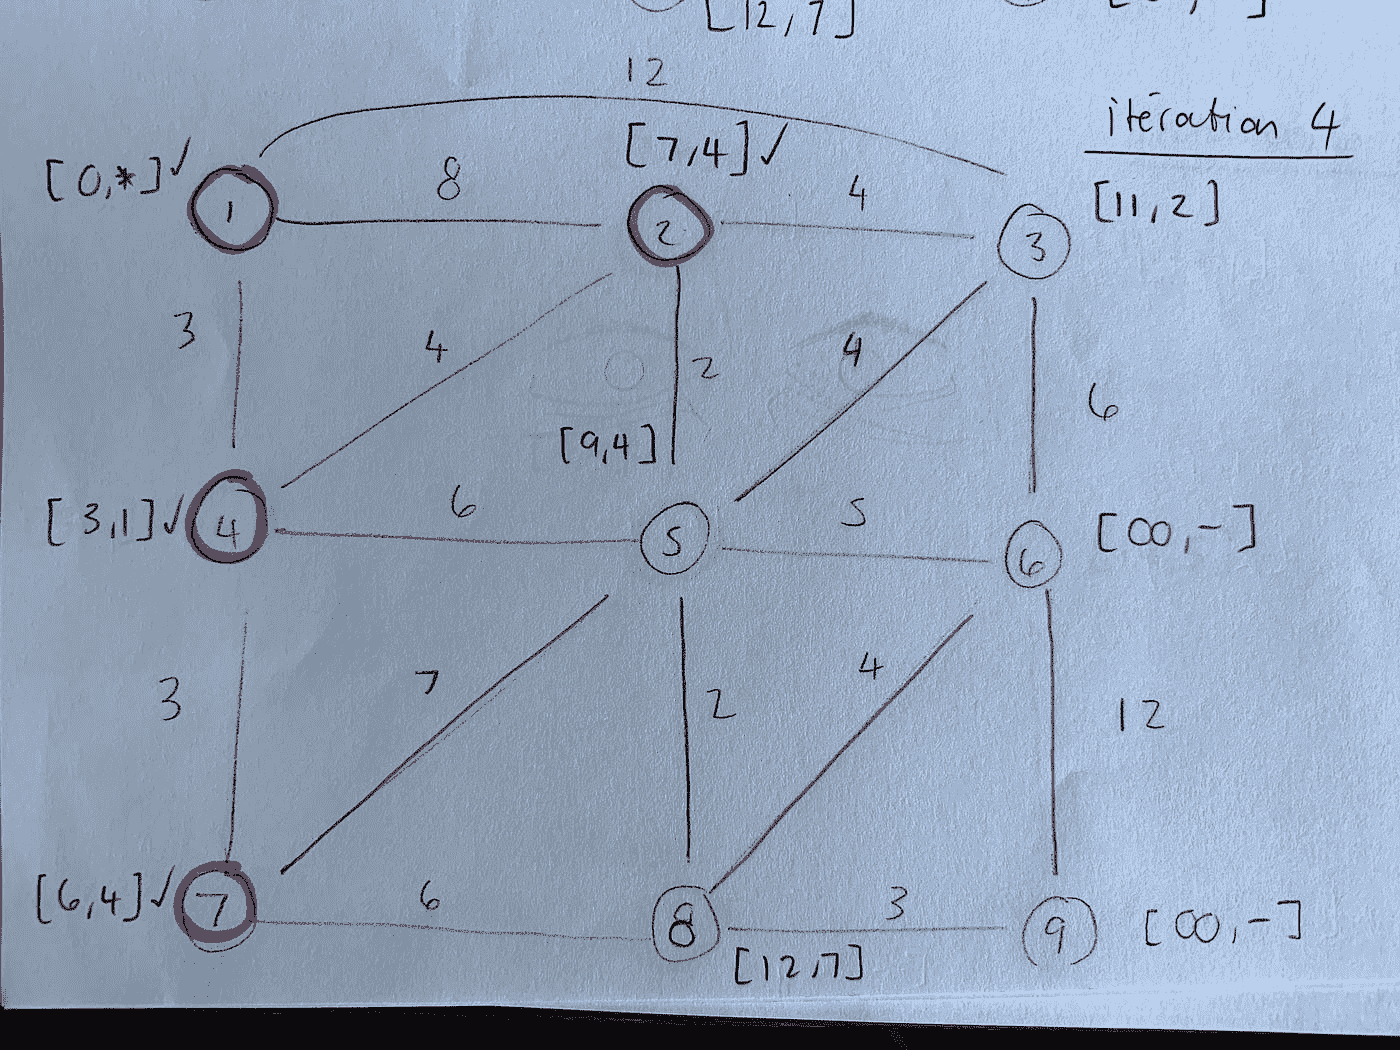 [12,7]
12
itération 4
[0,*]✓
[7,4]✓
[11,2]
8
4
1
2
3
3
4
2
4
6
[9,4]
[3,1]✓
6
5
[∞,-]
4
5
6
3
7
2
4
12
[6,4]✓
7
6
8
3
9
[∞,-]
[12,7]